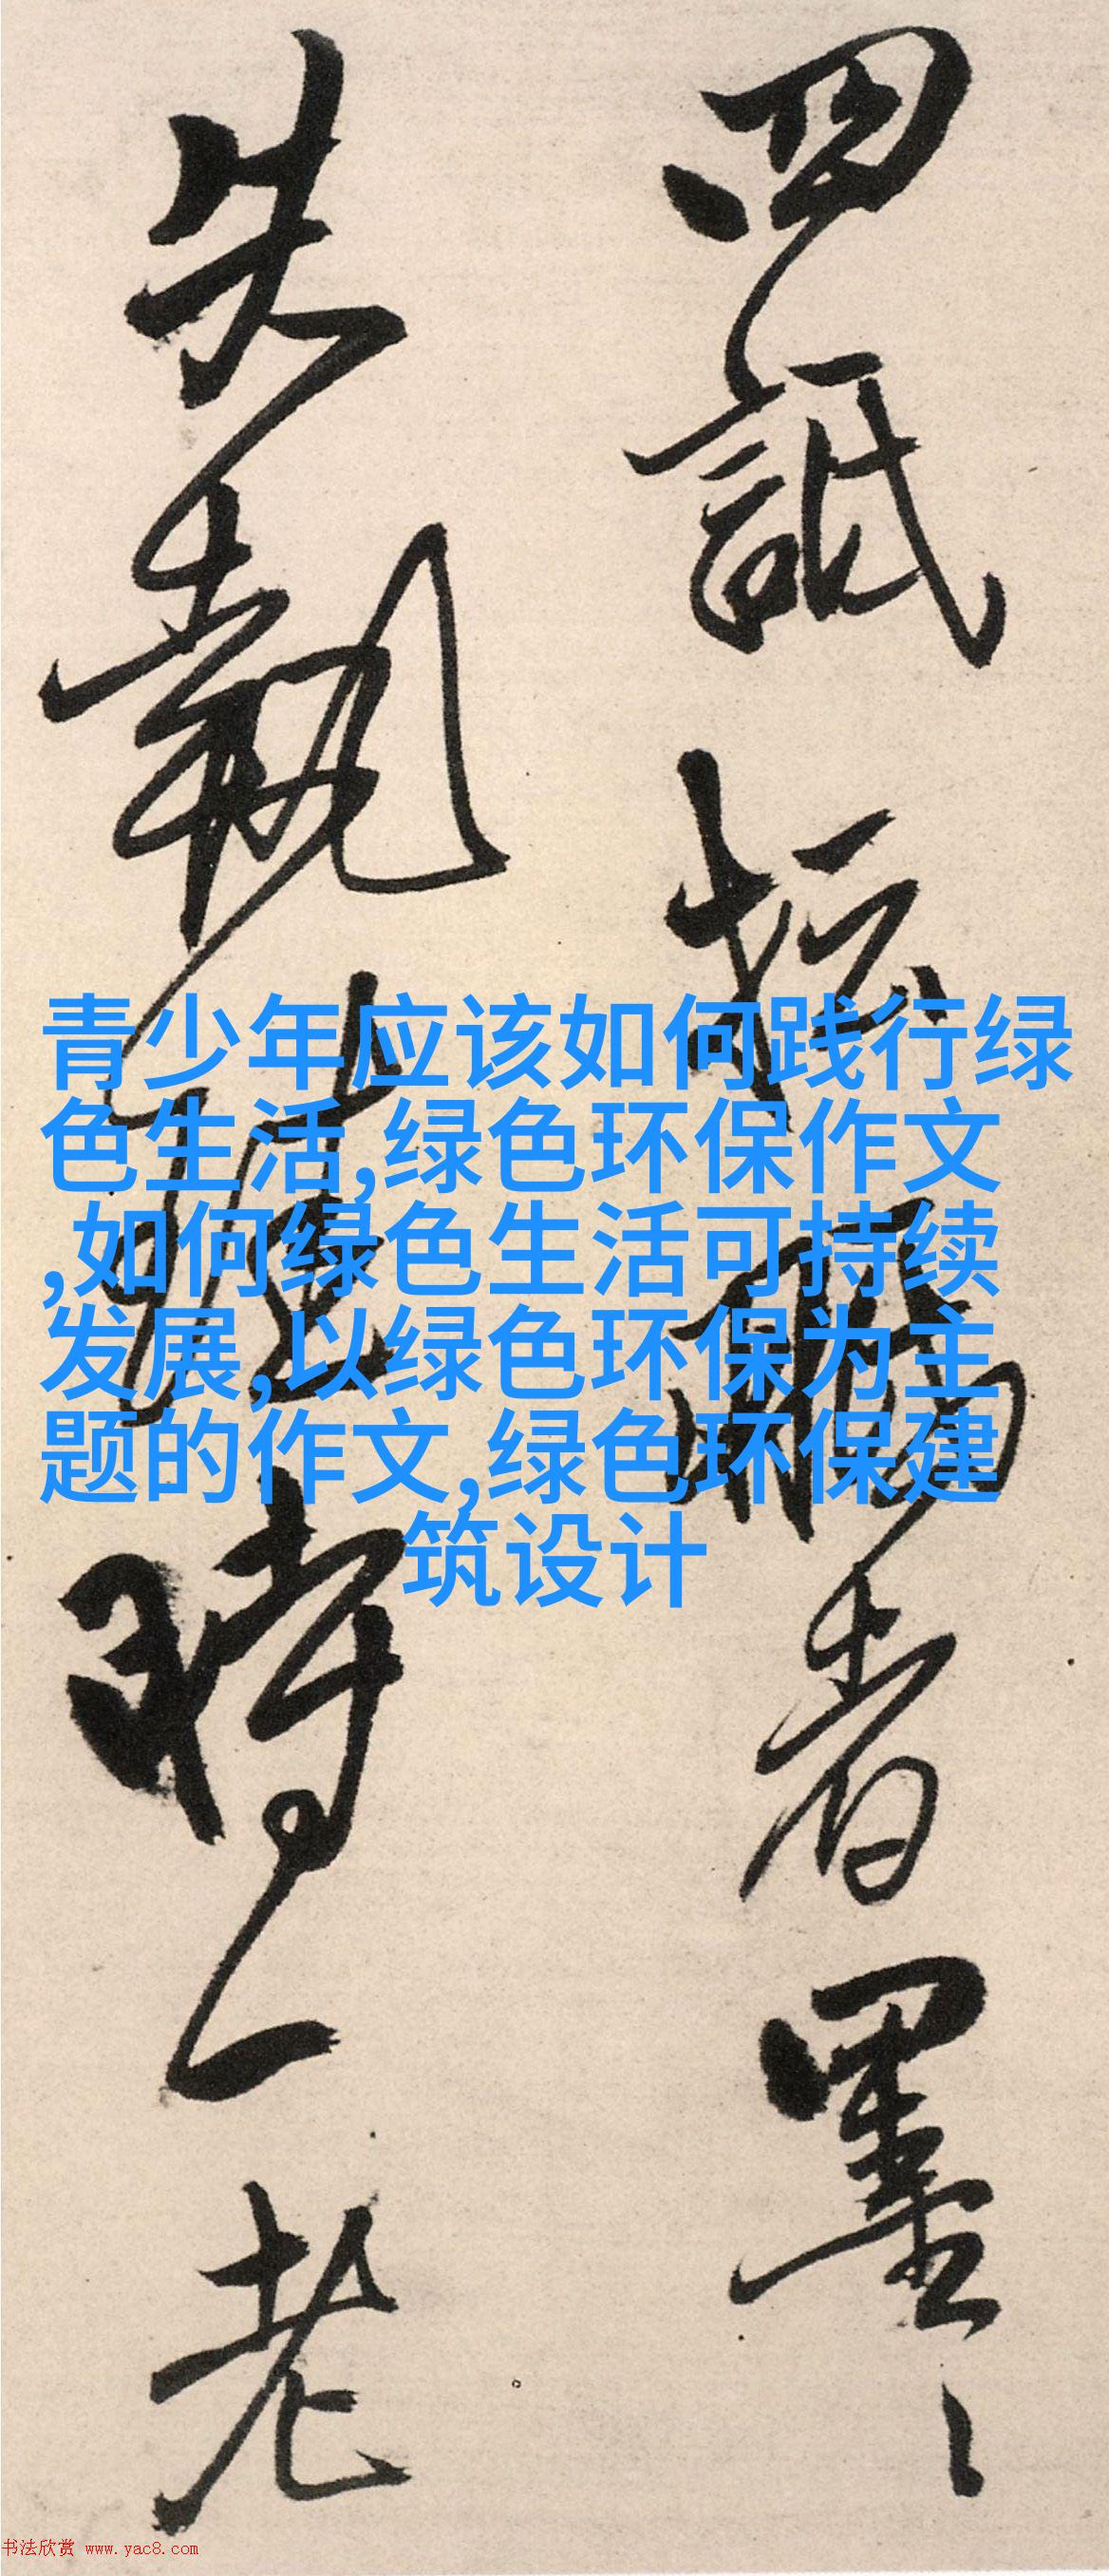 四詆坛
者墨
失執
時一老
青少年应该如何践行绿
色生活,绿色环保作文
,如何绿色生活可持续
发展,以绿色环保为主
题的作文,绿色环保建
筑设计
书法欣赏 www.yac8.com